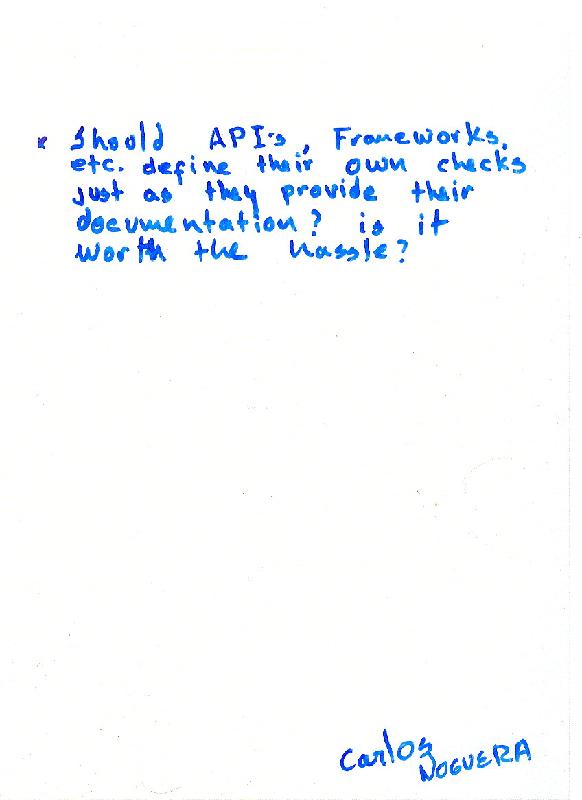 * Should API's, Frameworks,
etc. define their own checks
just as they provide their
documentation? is it
worth the hassle?
Carlos
NOGUERA